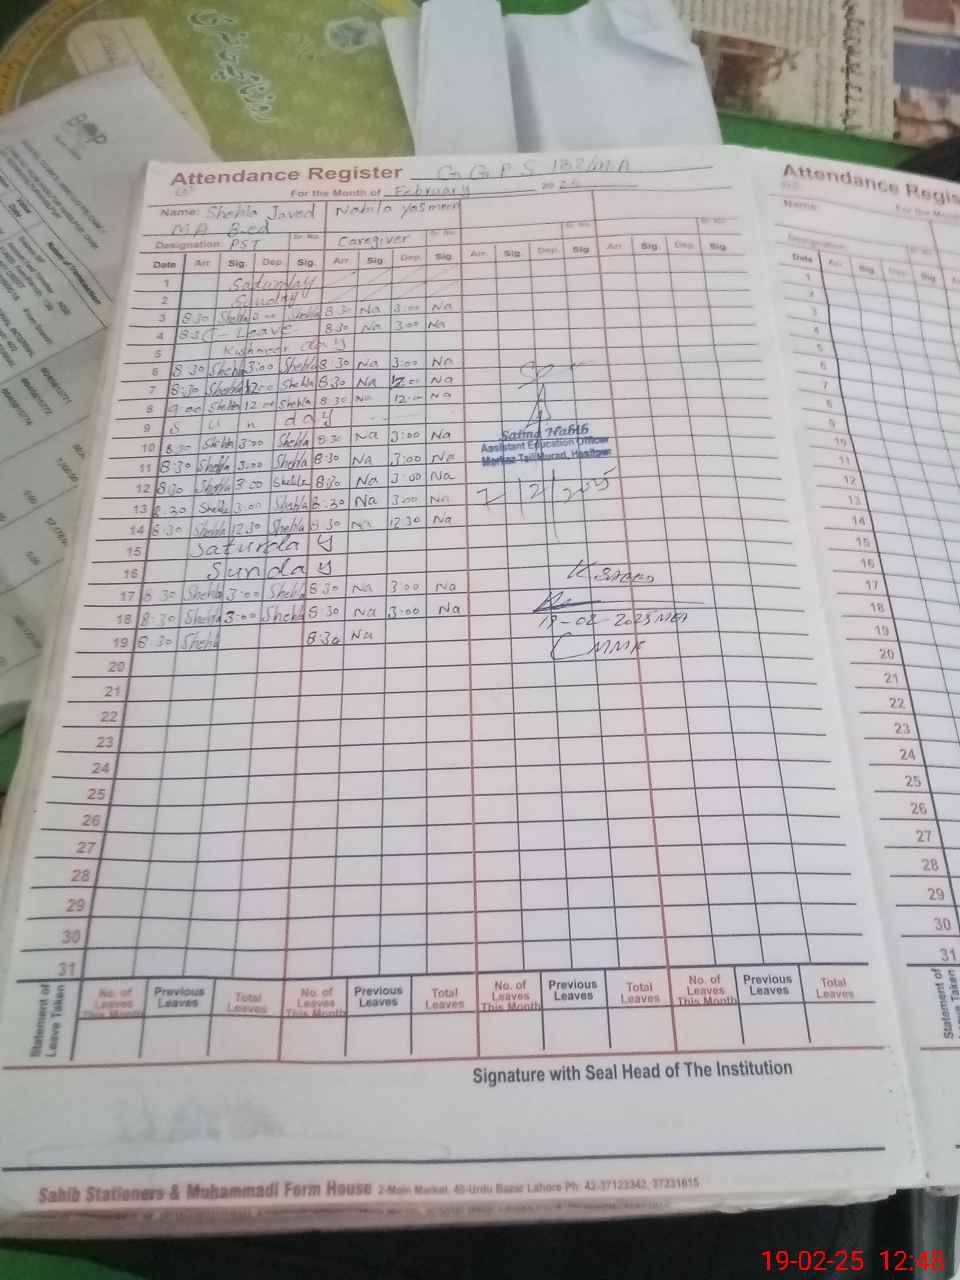 Attendance Register G G P S 132/M.A
For the Month of February 2025
Name: Shehla Javed Nabila Yasmeen
MA B.ed
Designation PST Sr. No. Caregiver Sr. No. Sr. No. Sr. No.
Date Arr. Sig. Dep. Sig. Arr. Sig. Dep. Sig. Arr. Sig. Dep. Sig Arr. Sig. Dep. Sig.
1 Saturday
2 Sunday
3 8:30 Shehla 3:00 Shehla 8:30 Na 3:00 Na
4 Leave 8:30 Na 3:00 Na
5 Kashmeer day
6 8:30 Shehla 3:00 Shehla 8:30 Na 3:00 Na
7 8:30 Shehla 12:00 Shehla 8:30 Na 12:00 Na
8 9:00 Shehla 12:00 Shehla 8:30 Na 12:00 Na
9 S u n d a y
10 8:30 Shehla 3:00 Shehla 8:30 Na 3:00 Na
11 8:30 Shehla 3:00 Shehla 8:30 Na 3:00 Na
12 8:30 Shehla 3:00 Shehla 8:30 Na 3:00 Na
13 8:30 Shehla 3:00 Shehla 8:30 Na 3:00 Na
14 8:30 Shehla 12:30 Shehla 8:30 Na 12:30 Na
15 Saturday
16 Sunday
17 8:30 Shehla 3:00 Shehla 8:30 Na 3:00 Na
18 8:30 Shehla 3:00 Shehla 8:30 Na 3:00 Na
19 8:30 Shehla 8:30 Na
20
21
22
23
24
25
26
27
28
29
30
31
Assistant Education Officer
Markaz Tail Murad, Hasilpur
7/2/2025
19-02-2025 MEA
Statement of Leave Taken
No. of Leaves This Month Previous Leaves Total Leaves No. of Leaves This Month Previous Leaves Total Leaves No. of Leaves This Month Previous Leaves Total Leaves No. of Leaves This Month Previous Leaves Total Leaves
Signature with Seal Head of The Institution
Sahib Stationers & Muhammadi Form House 2-Main Market, 40-Urdu Bazar Lahore Ph: 42-37123342, 37231615
Attendance Regis
For the Mon
Name:
Designation
Date Arr. Sig. Dep. Sig.
1
2
3
4
5
6
7
8
9
10
11
12
13
14
15
16
17
18
19
20
21
22
23
24
25
26
27
28
29
30
31
Statement of Leave Taken
19-02-25 12:48